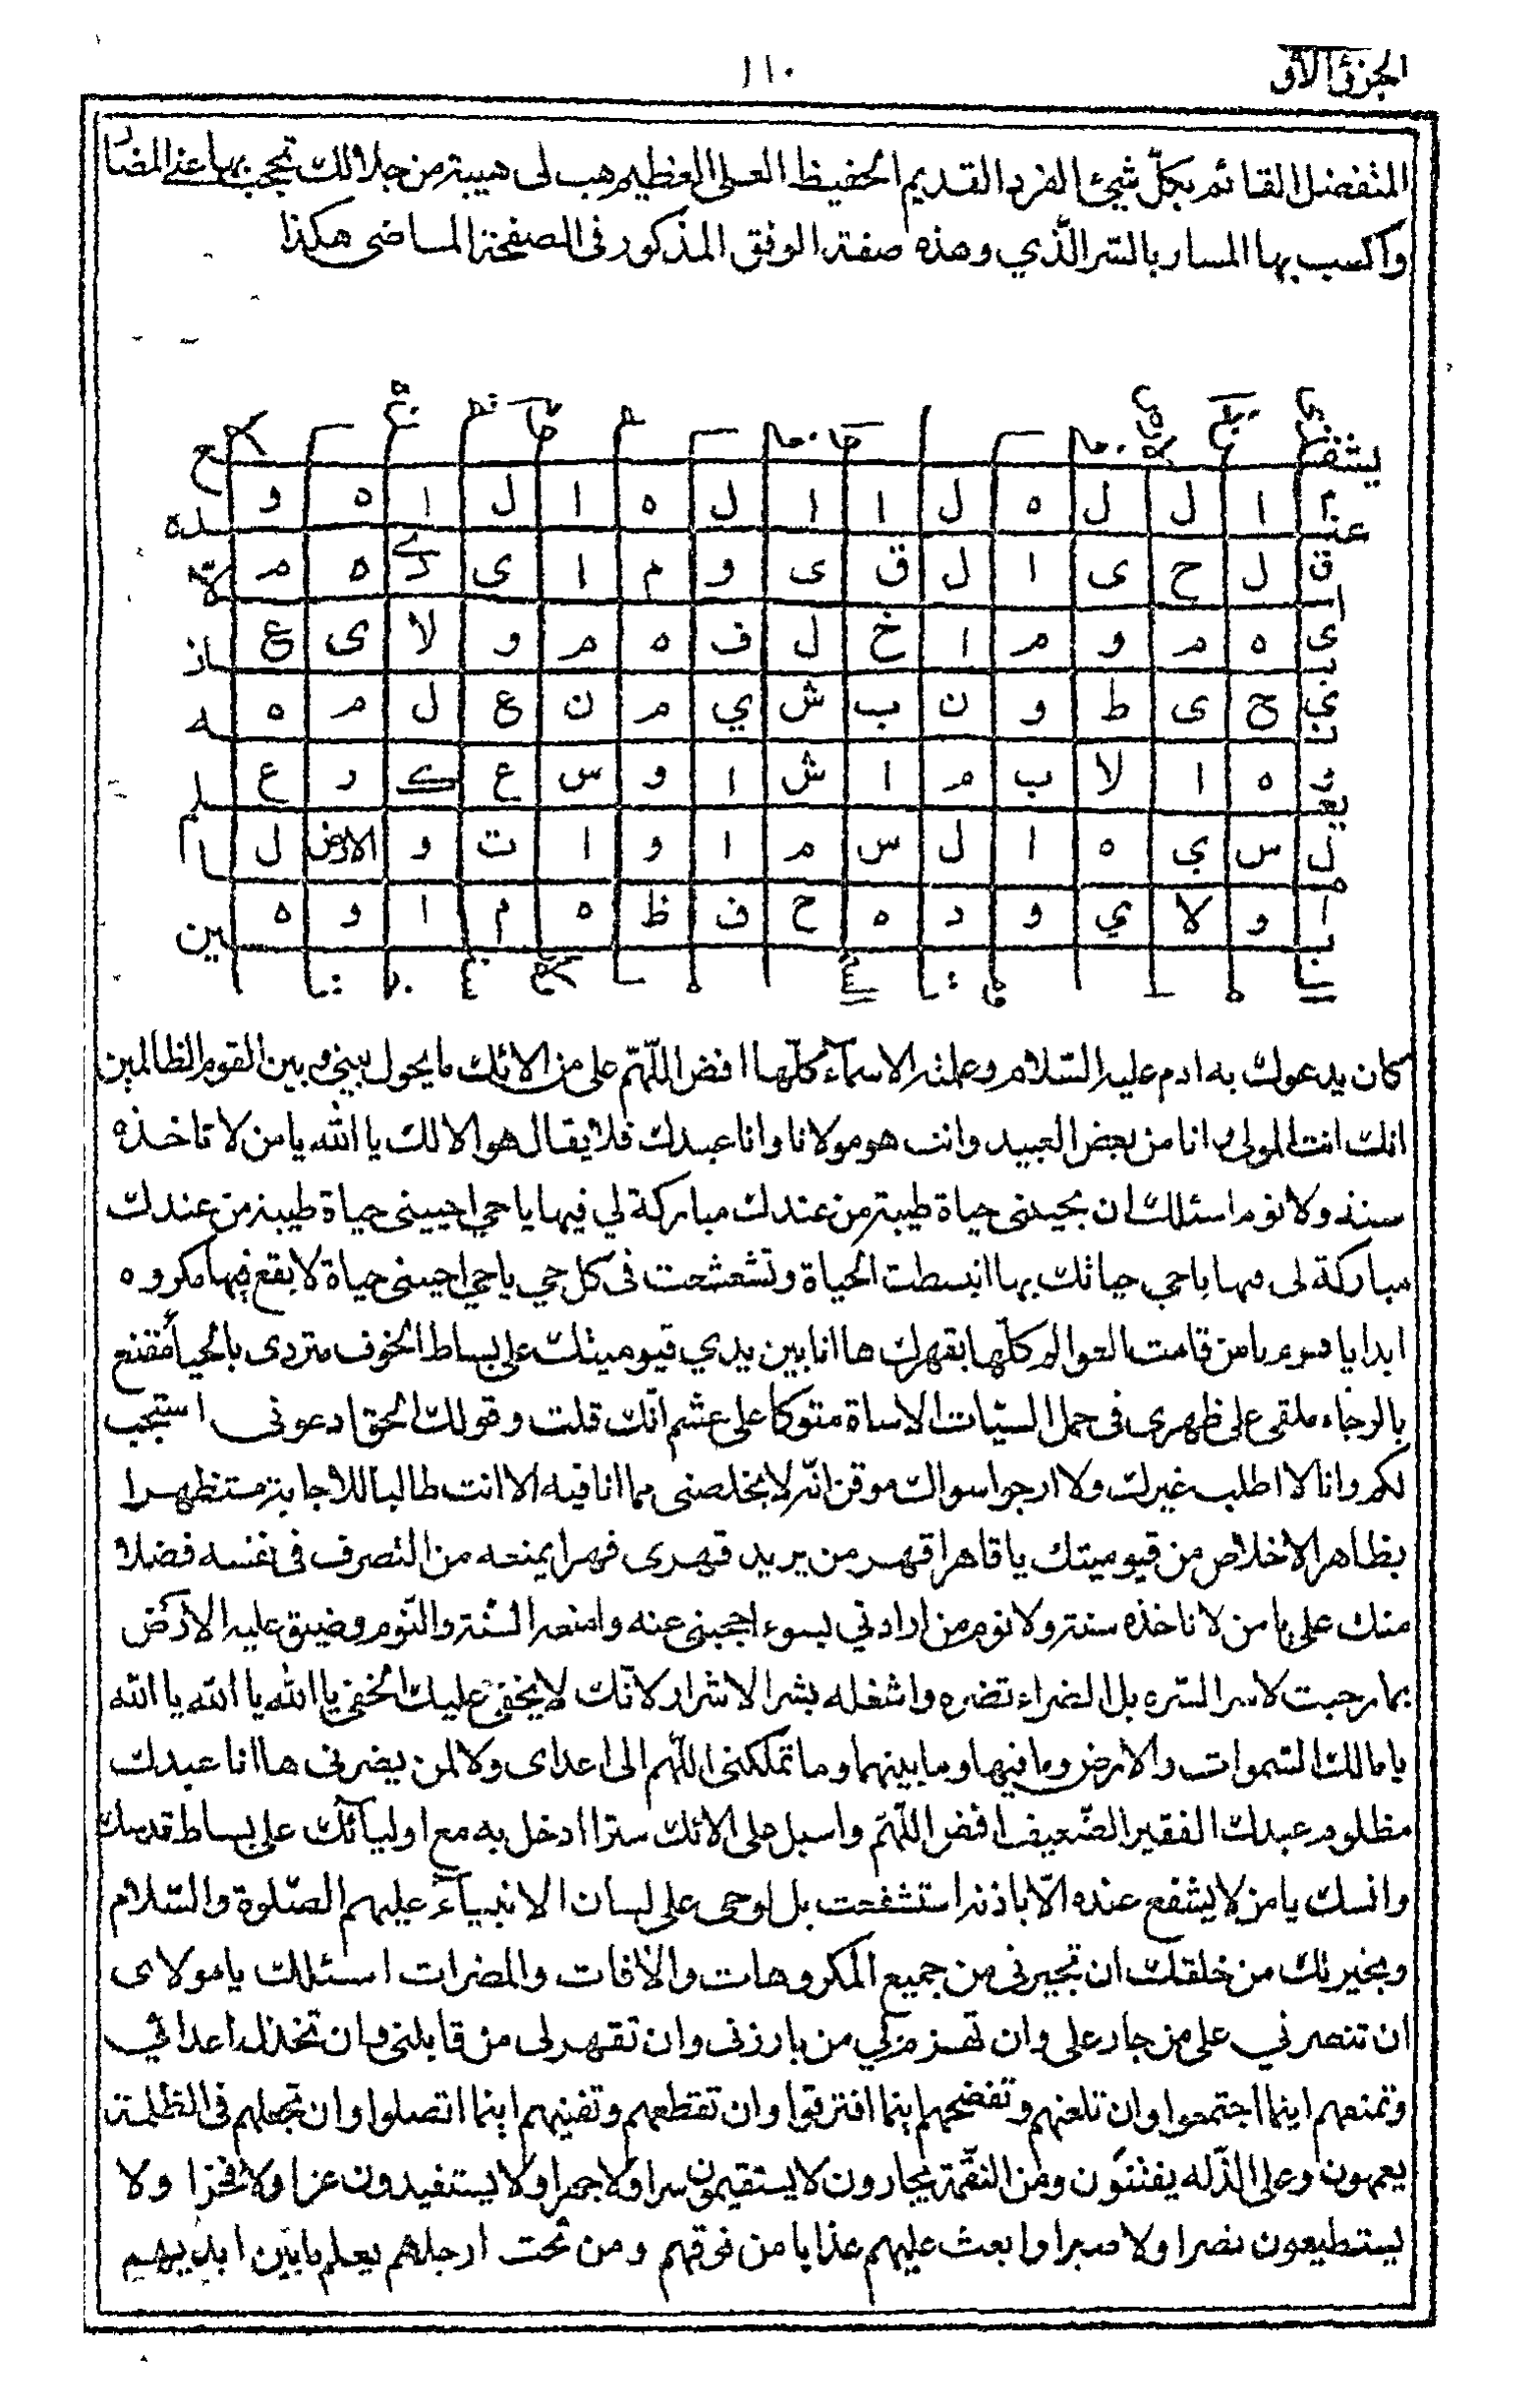 الجزئ الاول
١١٠
المتفضل القائم بكلّ شيئ الفرد القديم الحفيظ العلى العظيم هب لى هيبة من جلالك تحجب بها عنى المضا
واكسب بها المسار بالسّر الّذي وهذه صفة الوفق المذكور فى الصفحة الماضى هكذا
ا ل ل ه ل ا ا ل ه ا ل ا ه و
ق ل ح ى ا ل ق ى و م ا ى ه م
ى ه م و م ا خ ل ف ه م و لا ى ع
ي ح ى ط و ن ب ش ي م ن ع ل م ه
و ه ا لا ب م ا ش ا و س ع ك ر ع
ل س ي ه ا ل س م ا و ا ت و الارض ل
ا و لا ي و د ه ح ف ظ ه م ا و ه
كان يدعوك به ادم عليه السّلام وعلمته الاسمآء كلّها افض اللّهمّ على من الائك ما يحول بينى وبين القوم الظالمين
انك انت المولى وانا من بعض العبيد وانت هو مولانا وانا عبدك فلا يقال هو الا لك يا الله يا من لا تاخذه
سنة ولا نوم اسئلك ان تحيينى حياة طيبة من عندك مباركة لي فيها يا حي احيينى حياة طيبة من عندك
مباركة لى فيها يا حي حياتك بها انبسطت الحياة وتشعشعت فى كل حي يا حي احيينى حياة لا يقع فيها مكروه
ابدا يا قيوم يا من قامت العوالم كلّها بقهرك ها انا بين يدي قيوميتك على بساط الخوف متردى بالحيا مقنع
بالرجاء ملقى على ظهرى فى حمل السيئات الاساة متوكا على عشم انّك قلت وقولك الحق ادعونى استجب
لكم وانا لا اطلب غيرك ولا ارجو سواك موقن انّه لا يخلصنى مما انا فيه الا انت طالبا للاجابة مستظهرا
بظاهر الاخلاص من قيوميتك يا قاهرا قهر من يريد قهرى قهرا يمنعه من التصرف فى نفسه فضلا
منك على يا من لا تاخذه سنة ولا نوم من ارادني بسوء احجبنى عنه وامنعه السّنة والنّوم وضيق عليه الارض
بما رحبت لاسر السّره بل الضراء تضره واشغله بشر الاشرار لانّك لا يخفى عليك الخفى يا الله يا الله يا الله
يا مالك السّموات والارض وما فيها وما بينهما وما تملكنى اللّهم الى اعداى ولا لمن يضرنى ها انا عبدك
مظلوم عبدك الفقير الضّعيف افض اللّهمّ واسبل على الائك سترا ادخل به مع اوليائك على بساط قدسك
وانسك يا من لا يشفع عنده الّا باذنه استشفعت بل لوحى على لسان الانبيآء عليهم الصّلوة والسّلام
وبخيرتك من خلقك ان تجيرنى من جميع المكروهات والافات والمضرات اسئلك يا مولاى
ان تنصرني على من جار على وان تهزم لي من بارزنى وان تقهر لى من قابلنى وان تخذل اعدائي
وتمنعهم اينما اجتمعوا وان تلعنهم وتفضحهم اينما افترقوا وان تقطعهم وتفنيهم اينما اتصلوا وان تجعلهم فى الظلمة
يعمهون وعلى الذّله يفتنون ومن النقمة يجارون لا يستقيمون سرا ولا جهرا ولا يستفيدون عزا ولا فخرا ولا
يستطيعون نصرا ولا صبرا وابعث عليهم عذابا من فوقهم ومن تحت ارجلهم يعلم ما بين ايديهم